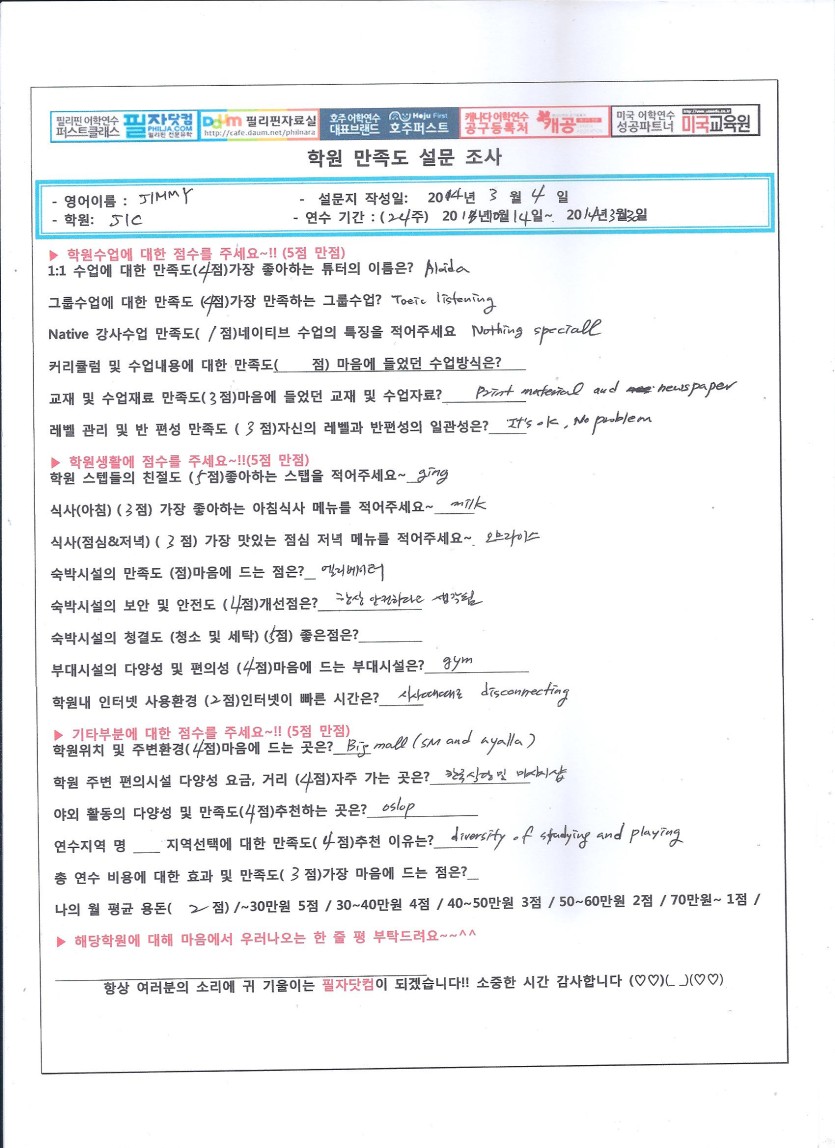 필리핀 어학연수 퍼스트클래스 필자닷컴 PHILJA.COM 필리핀 전문유학 Daum 필리핀자료실 http://cafe.daum.net/philnara 호주 어학연수 대표브랜드 Hoju First 호주퍼스트 캐나다 어학연수 공구등록처 캐공 미국 어학연수 성공파트너 미국교육원
학원 만족도 설문 조사
- 영어이름 : JIMMY - 설문지 작성일: 2014년 3 월 4 일
- 학원: JIC - 연수 기간 : (24주) 201년 월14일~ 2014년3월일
▶ 학원수업에 대한 점수를 주세요~!! (5점 만점)
1:1 수업에 대한 만족도(4점)가장 좋아하는 튜터의 이름은? Alaida
그룹수업에 대한 만족도 (4점)가장 만족하는 그룹수업? Toeic listening
Native 강사수업 만족도( 1 점)네이티브 수업의 특징을 적어주세요 Nothing speciall
커리큘럼 및 수업내용에 대한 만족도( 점) 마음에 들었던 수업방식은?
교재 및 수업재료 만족도(3점)마음에 들었던 교재 및 수업자료? Print material and newspaper
레벨 관리 및 반 편성 만족도 ( 3 점)자신의 레벨과 반편성의 일관성은? It's ok, No problem
▶ 학원생활에 점수를 주세요~!!(5점 만점)
학원 스텝들의 친절도 (5점)좋아하는 스탭을 적어주세요~ ging
식사(아침) (3점) 가장 좋아하는 아침식사 메뉴를 적어주세요~ milk
식사(점심&저녁) ( 3 점) 가장 맛있는 점심 저녁 메뉴를 적어주세요~ 오므라이스
숙박시설의 만족도 (점)마음에 드는 점은? 엘리베이터
숙박시설의 보안 및 안전도 (4점)개선점은? 항상 안전하다고 생각됨
숙박시설의 청결도 (청소 및 세탁) (5점) 좋은점은?
부대시설의 다양성 및 편의성 (4점)마음에 드는 부대시설은? gym
학원내 인터넷 사용환경 (2점)인터넷이 빠른 시간은? 시시때때로 disconnecting
▶ 기타부분에 대한 점수를 주세요~!! (5점 만점)
학원위치 및 주변환경(4점)마음에 드는 곳은? Big mall (SM and ayalla)
학원 주변 편의시설 다양성 요금, 거리 (4점)자주 가는 곳은? 한국식당 및 마사지샵
야외 활동의 다양성 및 만족도(4점)추천하는 곳은? oslop
연수지역 명 ___ 지역선택에 대한 만족도( 4 점)추천 이유는? diversity of studying and playing
총 연수 비용에 대한 효과 및 만족도( 3 점)가장 마음에 드는 점은?_
나의 월 평균 용돈( 2 점) /~30만원 5점 / 30~40만원 4점 / 40~50만원 3점 / 50~60만원 2점 / 70만원~ 1점 /
▶ 해당학원에 대해 마음에서 우러나오는 한 줄 평 부탁드려요~~^^
항상 여러분의 소리에 귀 기울이는 필자닷컴이 되겠습니다!! 소중한 시간 감사합니다 (♡♡)(_ _)(♡♡)